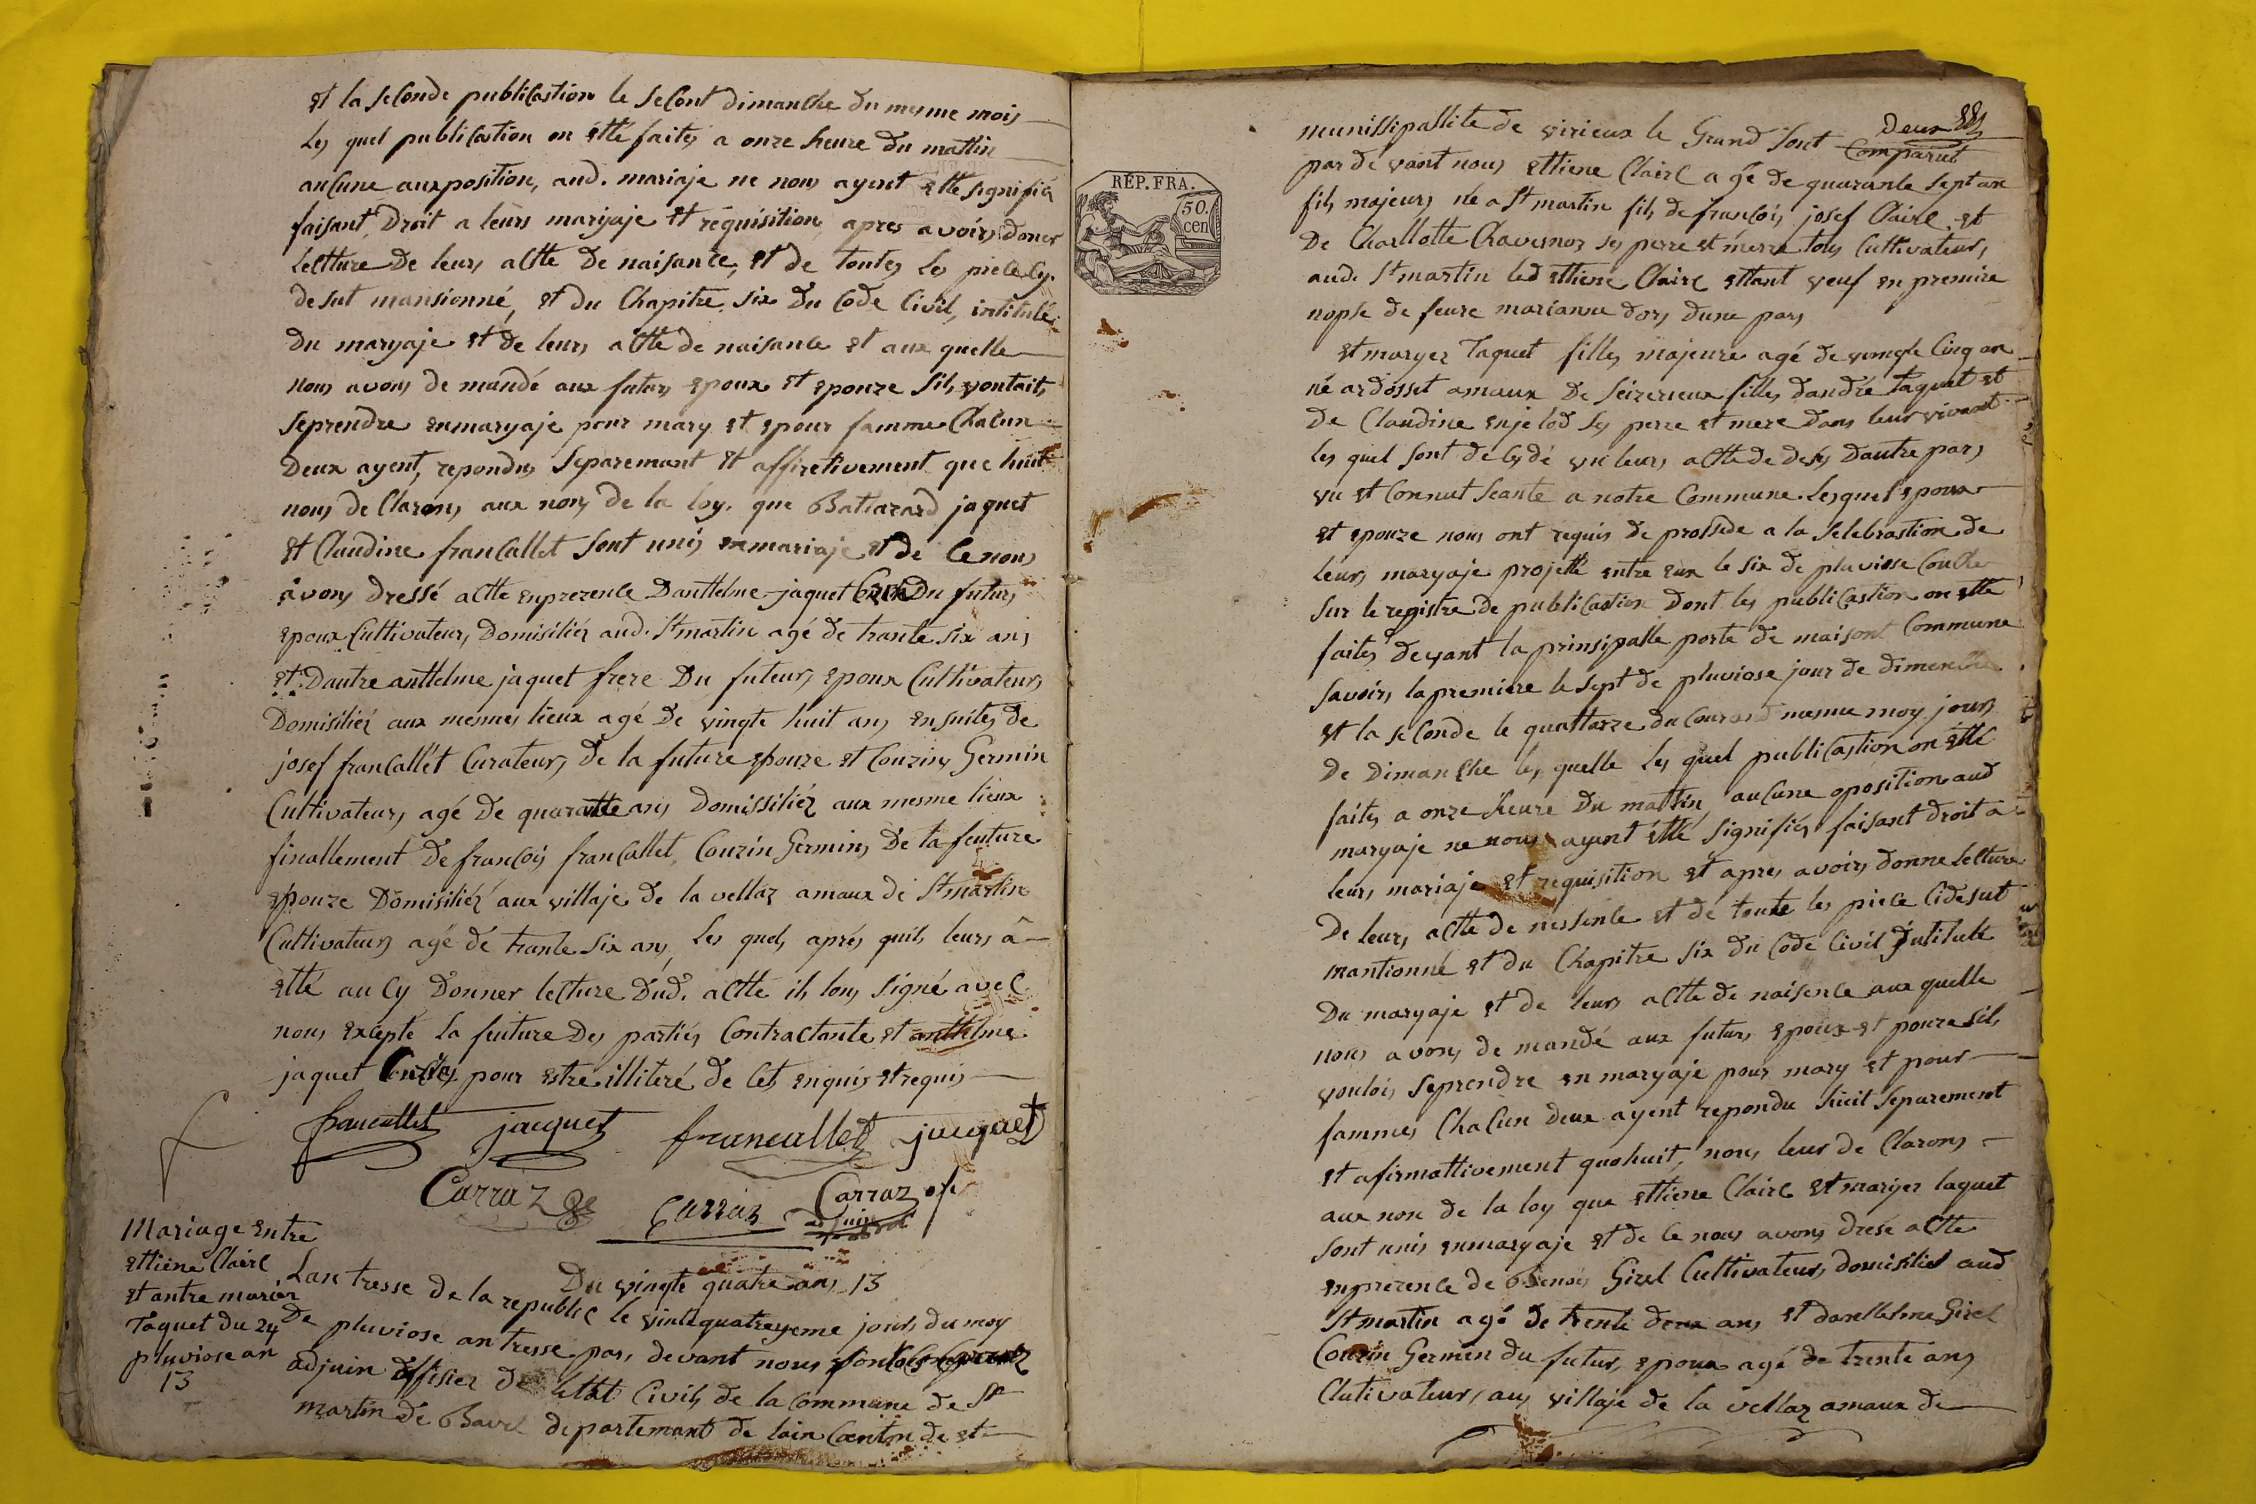 et la seConde publiCastion le seCont dimanche du mesme mois
les quel publiCation on étté faites a onze heure du mattin
auCune auxposition, aud. mariaje ne nous ayent etté signifiéz
faisant Droit a leurs maryaje et réquisition apres avoirs doner
leCtture De leurs aCtte De naisante, et de toutes les pieCe Cy.
desut mansionné, et du Chapitre six Du Code Civil, intitulé
Du maryaje et de leurs aCtte de naisance et aux quelle
nous avons de mandé aux futurs epoux et epouze sils vontaits
seprendre enmaryaje pour mary et epour famme ChaCun
Deux ayent, repondus separemant et affiretivement que huit
nous de Clarons aux nom de la loy. que Batiazard jaquet
et Claudine franCallet sont unis enmariaje et de Ce nous
avons dressé aCtte enprezence Danttelme jaquet Du futurs
epoux Cultivateurs Domisiliéz aud. St martin agé de trante six ans
et Dautre anttelme jaquet frere Du futeurs epoux Cultivateurs
Domisiliéz aux mesmes lieux agé De vingte huit ans ensuites de
josef franCallét Curateurs De la future epouze et Couzins Germin
Cultivateurs agé de quarantte ans Domissiliéz aux mesme lieux
finallement de françois franCallet Couzin Germins De la feuture
epouze Domisiliéz aux villaje de la vellaz amaux de St martin
Cultivateurs agé de trante six ans, les quels aprés quils leurs â
étté au Cy Donner leCture Dud. aCtte ils lons signé aveC
nous exCepté la feuture Des partiés ContraCtante et anttelme
jaquet pour estre illiteré de Cet enquis et requis
francallet jacquet francallet jacquet
Carraz Carraz Carraz of
adjuin
Mariage entre
ettiene ClaireC
et antre marier
Taquet du 24
pluviose an
13
Du vingte quatre ans 13
Lan tresse de la republiC le vinte quatreyeme jours du moy
De pluviose an tresse pars devant nous
adjuin offisier de lettat Civils de la Commune de St
martin de Bavel departemant de lain Canton de et
Deux
munissipallite de virieux le Grand sont Comparut
par de vant nous ettiene ClaireC agé de quarante sept ans
fils majeurs né a St martin fils de françois josef ClaireC et
De Charllotte Chavernoz ses perre et merre tous Cultivateurs
aud. St martin led ettiene ClaireC ettant veuf en premire
nopse de feure marianne dors dune pars
et maryez Taquet filles majeure agé de vingte Cinq an
né ardosset amaux De seizerieux filles dandré Taquet et
De Claudine enjelod ses perre et mere dans leur vivant
les quel sont deCedé vu leurs aCtte de deses Dautre pars
vu et Connut seante a notre Commune. lesquel epoux
et epouze nous ont requis de prossede a la selebrastion de
leurs maryaje projetté entre eux le six de pluviose Couche
sur le registre de publiCastion Dont les publiCastion on etté
faites devant la prinsipalle porte de maisont Commune
savoirs la premiere le sept de pluviose jour de dimenche
et la seConde le quattorze du Courand mesme moy jours
De Dimanche les quelle les quel publiCastion on étté
faites a onze heure Du mattin, auCune oposition aud
maryaje ne nous ayant étté signifiéz faisant droit a
leurs mariaje et requisition et apres avoirs donne leCture
De leurs aCtte de nessence et de toute les pieCe Cidesut
mantionné et du Chapitre six du Code Civil intitulé
Du maryaje et de leurs aCtte de naisence aux quelle
nous avons de mandé aux futurs epoux et pouze sils
voulois seprendre en maryaje pour mary et pour
fammes ChaCun deux ayent repondu huit separement
et afirmattivement quohuit, nous leur de Clarons
aux non de la loy que ettiene ClaireC et maryez taquet
sont unis enmaryaje et de Ce nous avons dresé aCtte
enprezence de Benois Girel Cultivateurs domisiliéz aud
St martin agé de trente deux ans et dantthelme Girel
Couzin Germen du futurs epoux agé de trente ans
Clutivateurs aux villaje de la vellaz amaux de
RÉP. FRA.
50.
cen